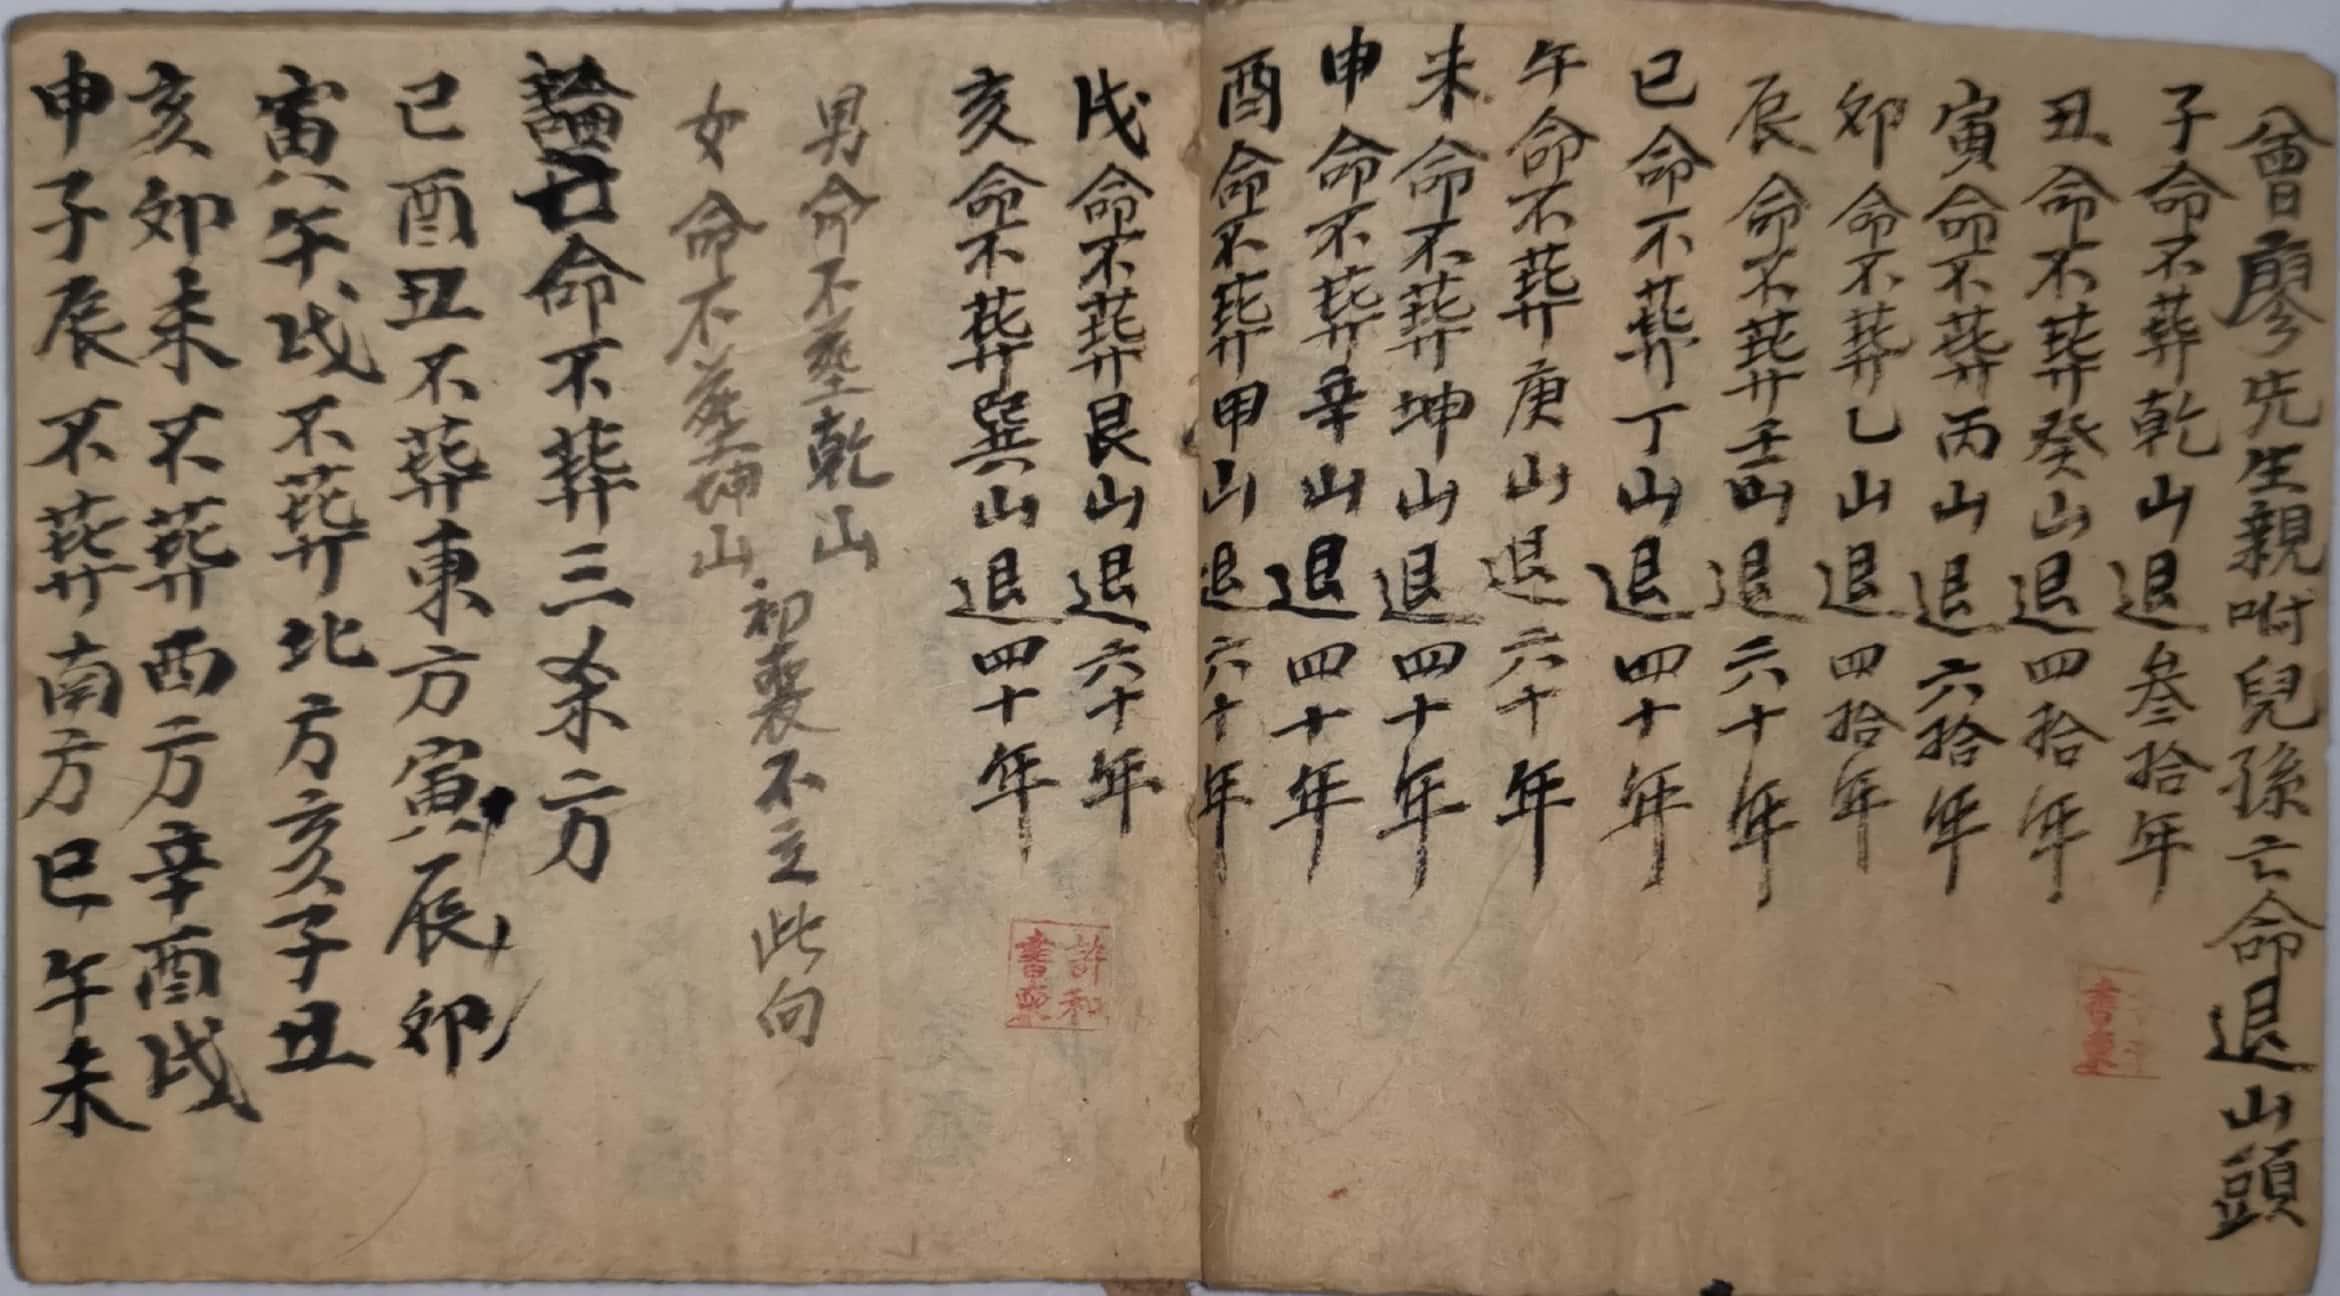 曾廖先生親咐兒孫亡命退山頭
子命不葬乾山退叁拾年
丑命不葬癸山退四拾年
寅命不葬丙山退六拾年
夘命不葬乙山退四拾年
辰命不葬壬山退六十年
巳命不葬丁山退四十年
午命不葬庚山退六十年
未命不葬坤山退四十年
申命不葬辛山退四十年
酉命不葬甲山退六十年
戌命不葬艮山退六十年
亥命不葬巽山退四十年
許和
書東
男命不塟乾山
女命不塟坤山
初喪不立此向
論亡命不葬三杀方
巳酉丑不葬東方寅辰夘
寅午戌不葬北方亥子丑
亥夘未不葬西方辛酉戌
申子辰不葬南方巳午未